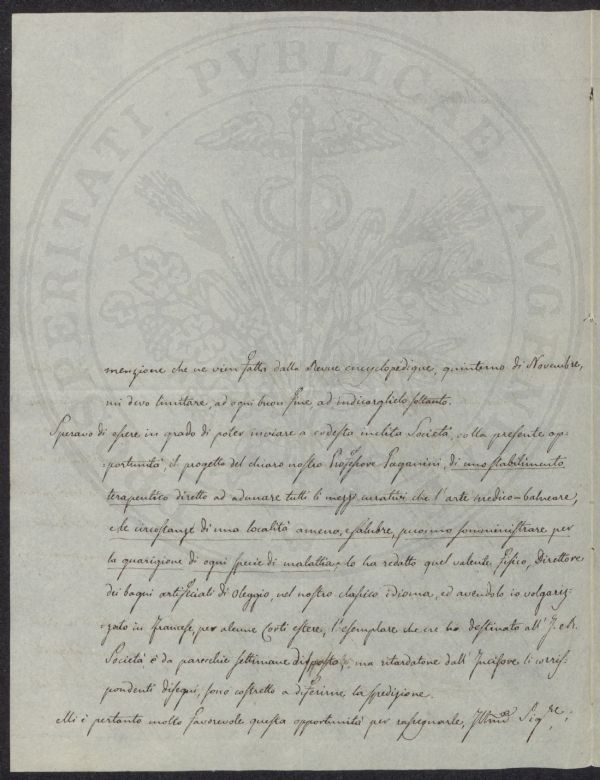 PROSPERITATI PVBLICAE AVGEN
menzione che ne vien fatta dalla Revue encyclopedique, quinterno di Novembre,
mi devo limitare, ad ogni buon fine, ad indicarglielo soltanto.
Speravo di essere in grado di poter inviare a codesta inclita Società, colla presente op=
=portunità, il progetto del chiaro nostro Professore Paganini, di uno stabilimento
terapeutico diretto ad adunare tutti li mezzi curativi che l'arte medico-balneare,
e le circostanze di una località amena, e salubre, possono somministrare per
la guarigione di ogni specie di malattia; lo ha redatto quel valente Fisico, Direttore
dei bagni artificiati di Oleggio, nel nostro classico idioma, ed avendolo io volgariz=
=zato in Francese, per alcune Corti estere, l'esemplare che ne ho destinato all' I. e R.
Società è da parecchie settimane disposto; ma ritardatone dall' Incisore li corris=
pondenti disegni, sono costretto a differirne la spedizione.
Mi è pertanto molto favorevole questa opportunità per rassegnarle, Ill.mo Sig.re,